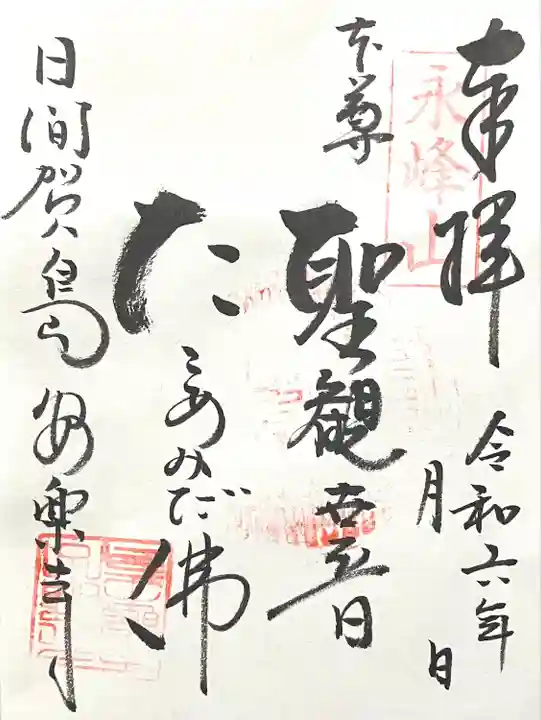 奉拝
永峰山
令和六年
月　日
本尊
聖観世音
たこあみだ佛
日間賀島　安楽寺